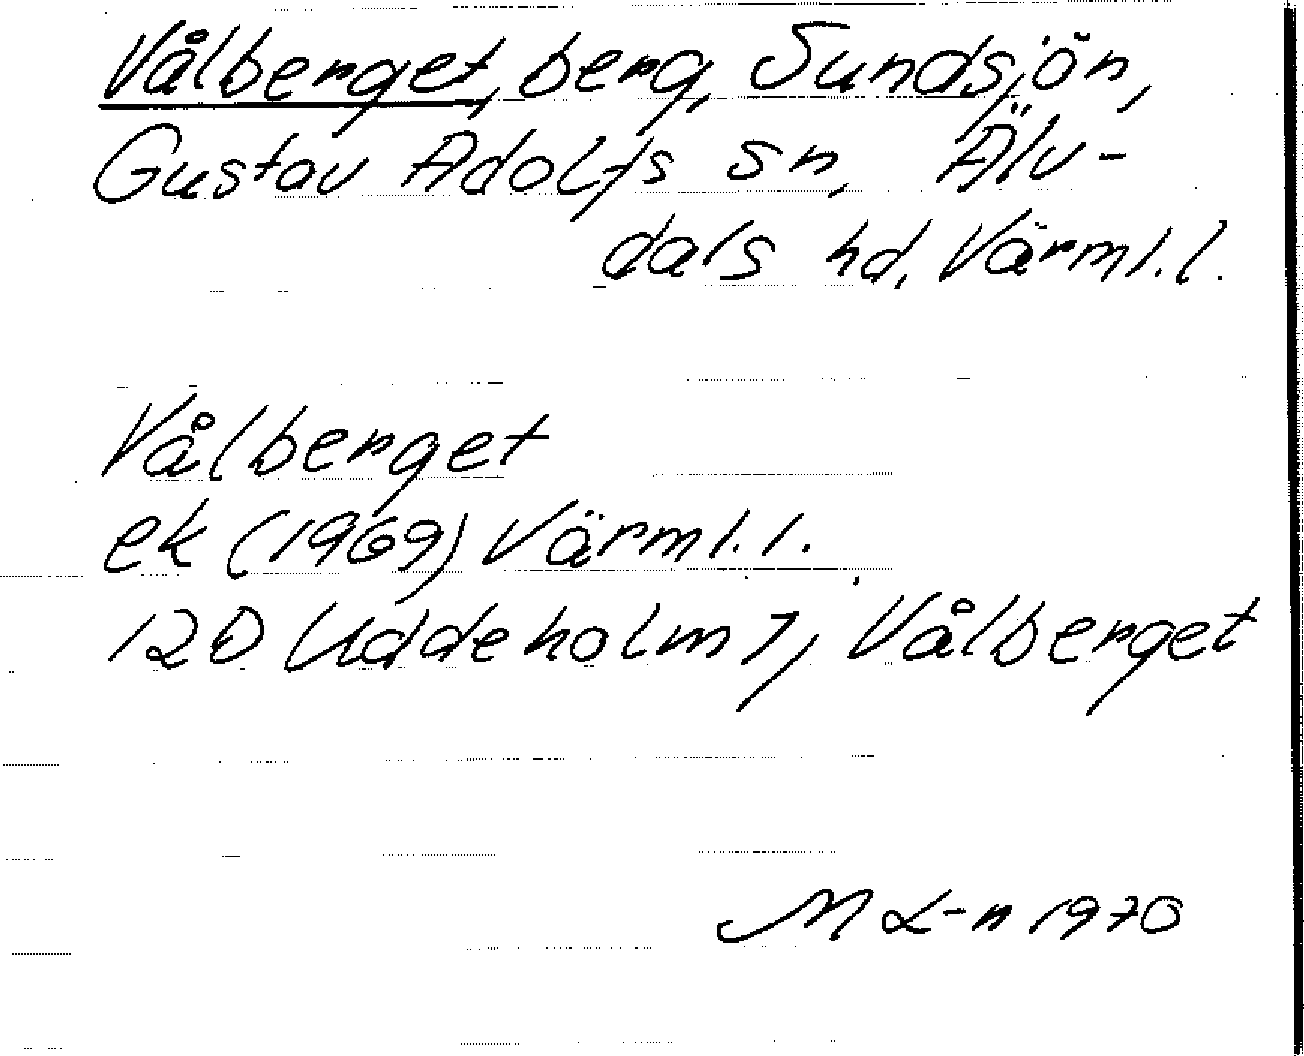 Vålberget, berg, Sundsjön,
Gustav Adolfs sn, Älv-
dals hd, Värml.l.
Vålberget
ek (1969) Värml.l.
12D Uddeholm 7, Vålberget
M L-n 1970